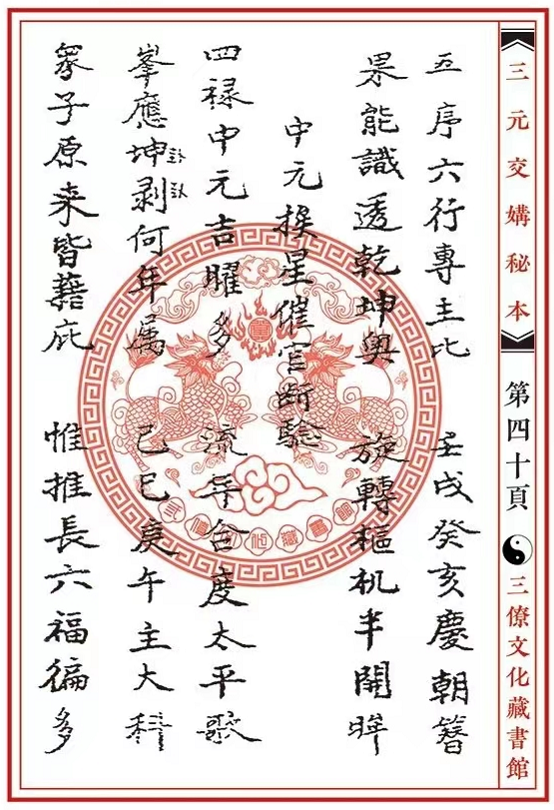 三元交媾秘本
第四十頁
三僚文化藏書館
五序六行專主比 壬戌癸亥慶朝簪
果能識透乾坤奧 旋轉樞机半開
中元換星催官斷驗
四祿中元吉曜多 流年合度太平歌
峯應坤剥何年 己巳庚午主大科
衆子原来皆藉庇 惟推長六福徧多